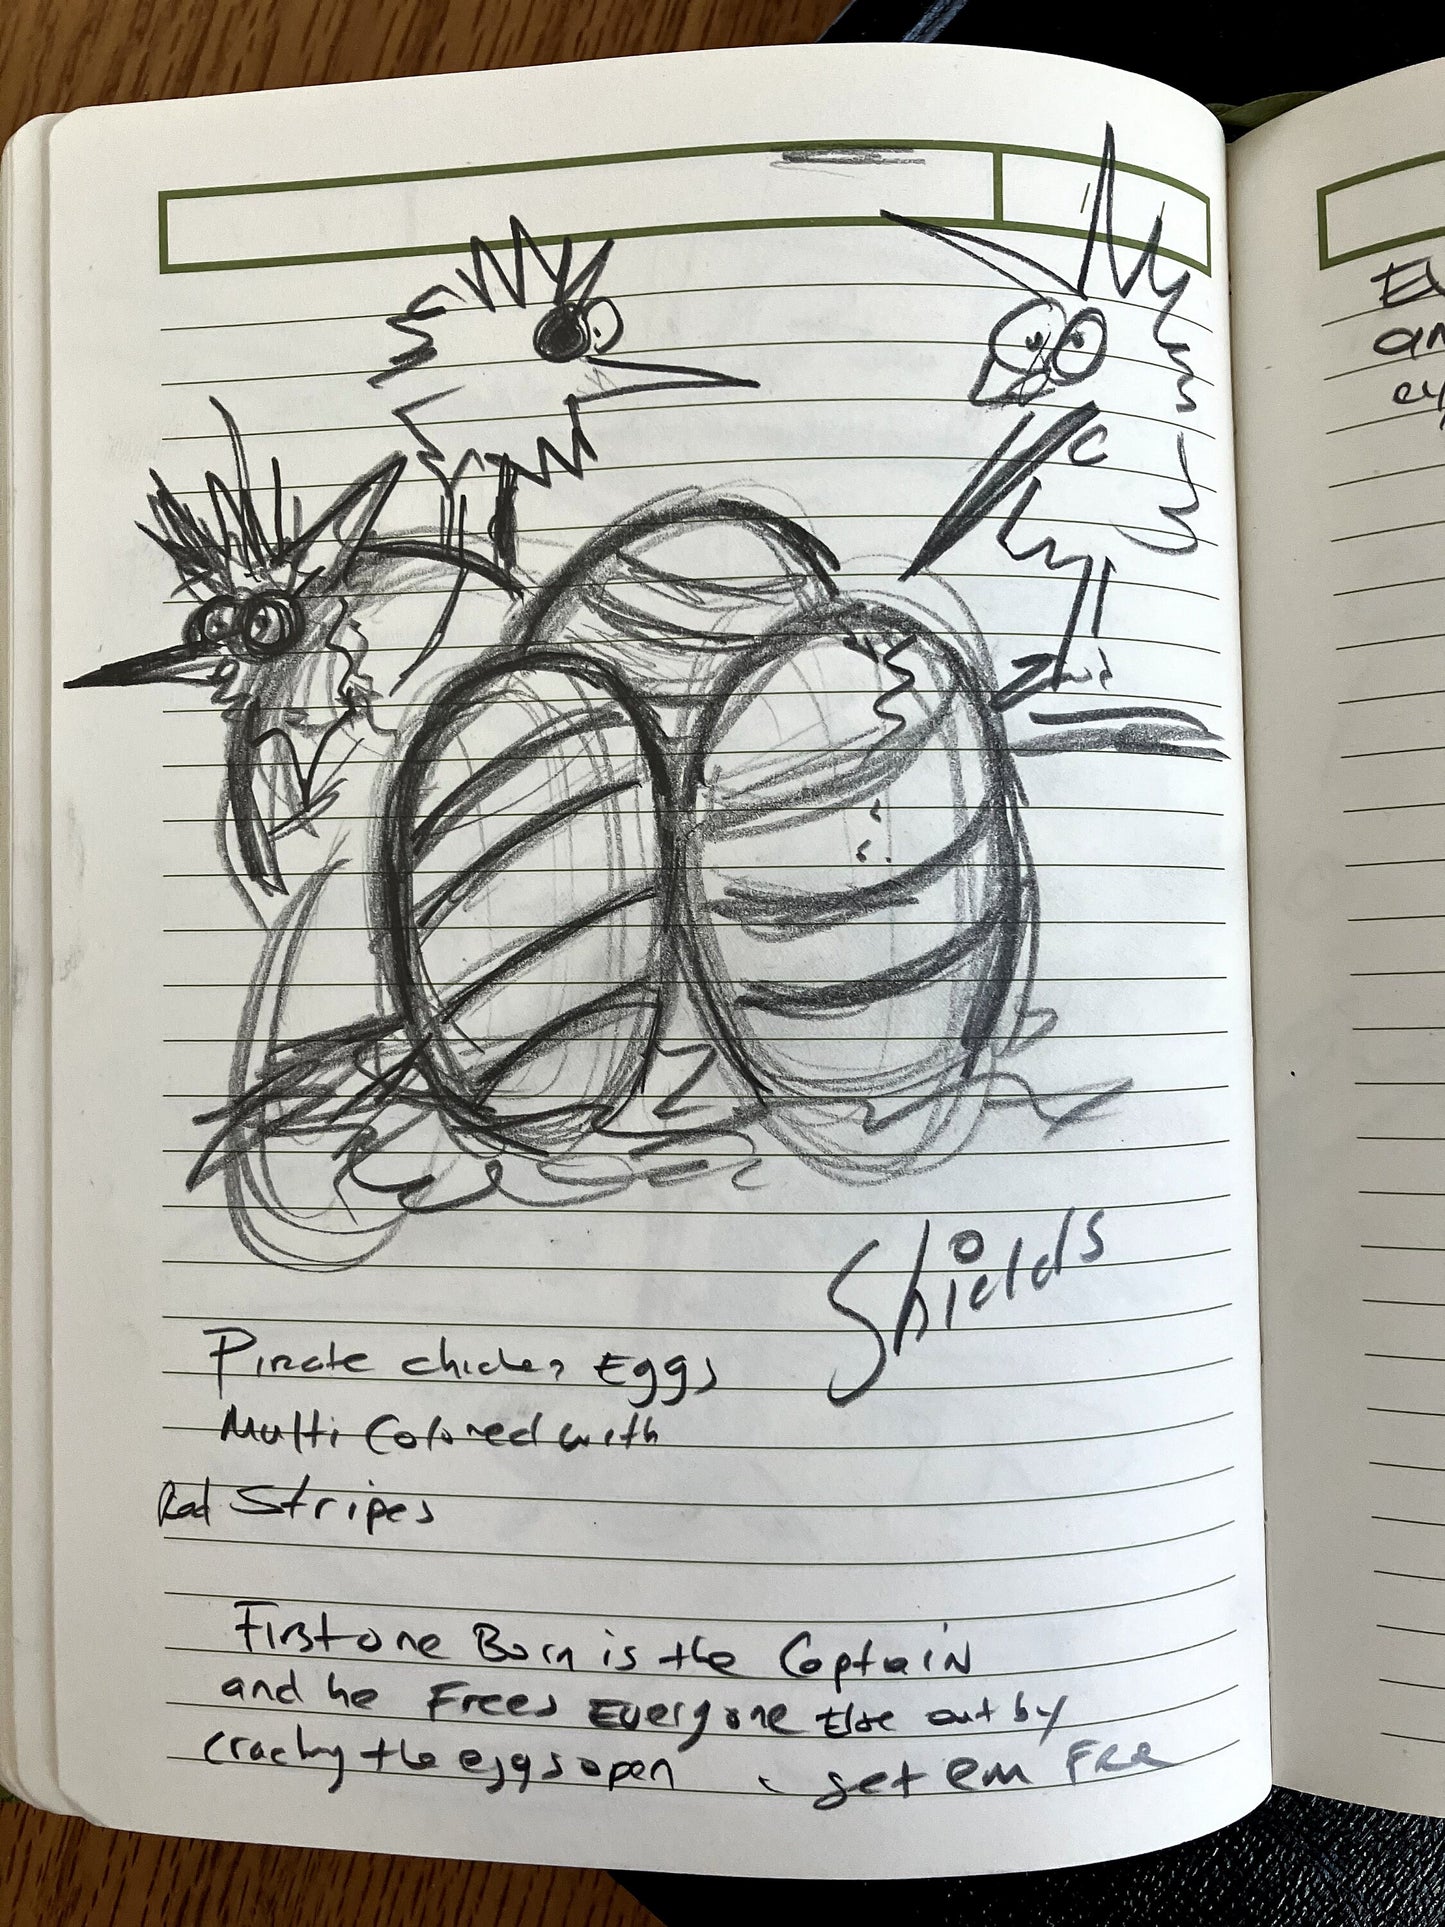 Shields
Pirate chicken Eggs
Multi Colored with
Red Stripes
First one Born is the Captain
and he Frees Everyone Else out by
cracking the eggs open get em Free